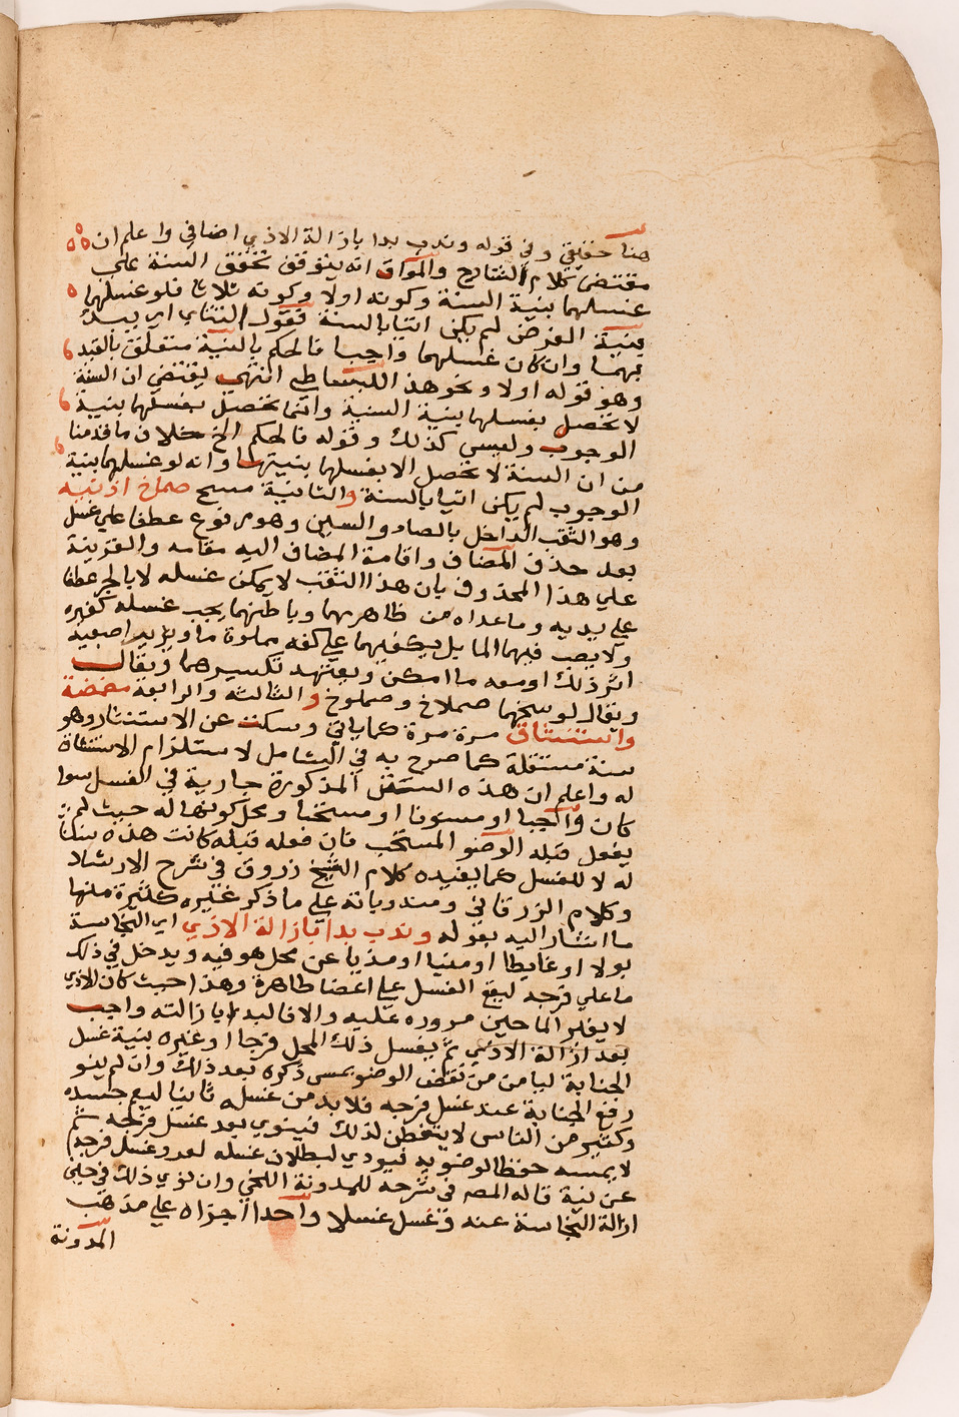 هنا حقيقي وفي قوله وندب بدا بازالة الاذي اضافي واعلم ان
مقتضى كلام الشارح والمواق انه يتوقف تحقق السنة علي
غسلهما بنية السنة وكونه اولا وكونه ثلاثا فلو غسلهما
بنية الفرض لم يكن اتيا بالسنة فقول التتاي اي يبدا
بهما وان كان غسلهما واجبا فالحكم بالسنية متعلق بالقيد
وهو قوله اولا ونحو هذا اللبساطي انتهي يقتضي ان السنة
لا تحصل بغسلهما بنية السنية وانما تحصل بغسلهما بنية
الوجوب وليس كذلك وقوله فالحكم الخ خلاف ما قدمنا
من ان السنة لا تحصل الا بغسلهما بنيتها وانه لو غسلهما بنية
الوجوب لم يكن اتيا بالسنة والثانية مسح صماخ اذنيه
وهو الثقب الداخل بالصاد والسين وهو مرفوع عطفا علي غسل
بعد حذف المضاف واقامة المضاف اليه مقامه والقرينة
علي هذا المحذوف بان هذا الثقب لا يمكن غسله لا بالجر عطفا
علي يديه وما عداه من ظاهرهما وباطنهما يجب غسله كغيره
ولا يصب فيهما الما بل يكفيهما علي كفه مملوة ما ويدير اصبعيه
اثر ذلك اوسعه ما امكن ويعتهد تكسيرهما ويقال
ويقال لوسخهما صملاخ وصملوخ والثالثه والرابعة مضمضة
واستنشاق مرة مرة كما ياتي وسكت عن الاستنثار وهو
سنة مستقلة كما صرح به في الشامل لاستلزام الاستنشاق
له واعلم ان هذه السنن المذكورة جارية في الغسل سوا
كان واجبا او مسنونا او مستحبا ومحل كونها له حيث لم
يفعل قبله الوضو المستحب فان فعله قبله كانت هذه سننا
له لا للغسل كما يفيده كلام الشيخ زروق في شرح الارشاد
وكلام الزرقاني ومندوباته علي ما ذكر غيره كثيرة منها
ما اشار اليه بقوله وندب بدا بازالة الاذي اي النجاسة
بولا او غايطا او منيا او مذيا عن محل هو فيه ويدخل في ذلك
ما علي فرجه ليقع الغسل علي اعضا طاهرة وهذا حيث كان الاذي
لا يغير الما حين مروره عليه والا فالبدا بازالته واجب
بعد ازالة الاذي ثم يغسل ذلك المحل فرجا او غيره بنية غسل
الجنابة ليامن من نقض الوضو بمس ذكره بعد ذلك وان لم ينو
رفع الجنابة عند غسل فرجه فلا بد من غسله ثانيا ليعم جسده
وكثير من الناس لا يتفطن لذلك فينوي بعد غسل فرجه ثم
لا يمسه حفظا لوضويه فيودي لبطلان غسله لعدو غسل فرجه
عن نية قاله المصه في شرحه للمدونة اللخي وان نوي ذلك في حين
ازالة النجاسة عنه وغسل غسلا واحدا اجزاه علي مذهب
المدونة